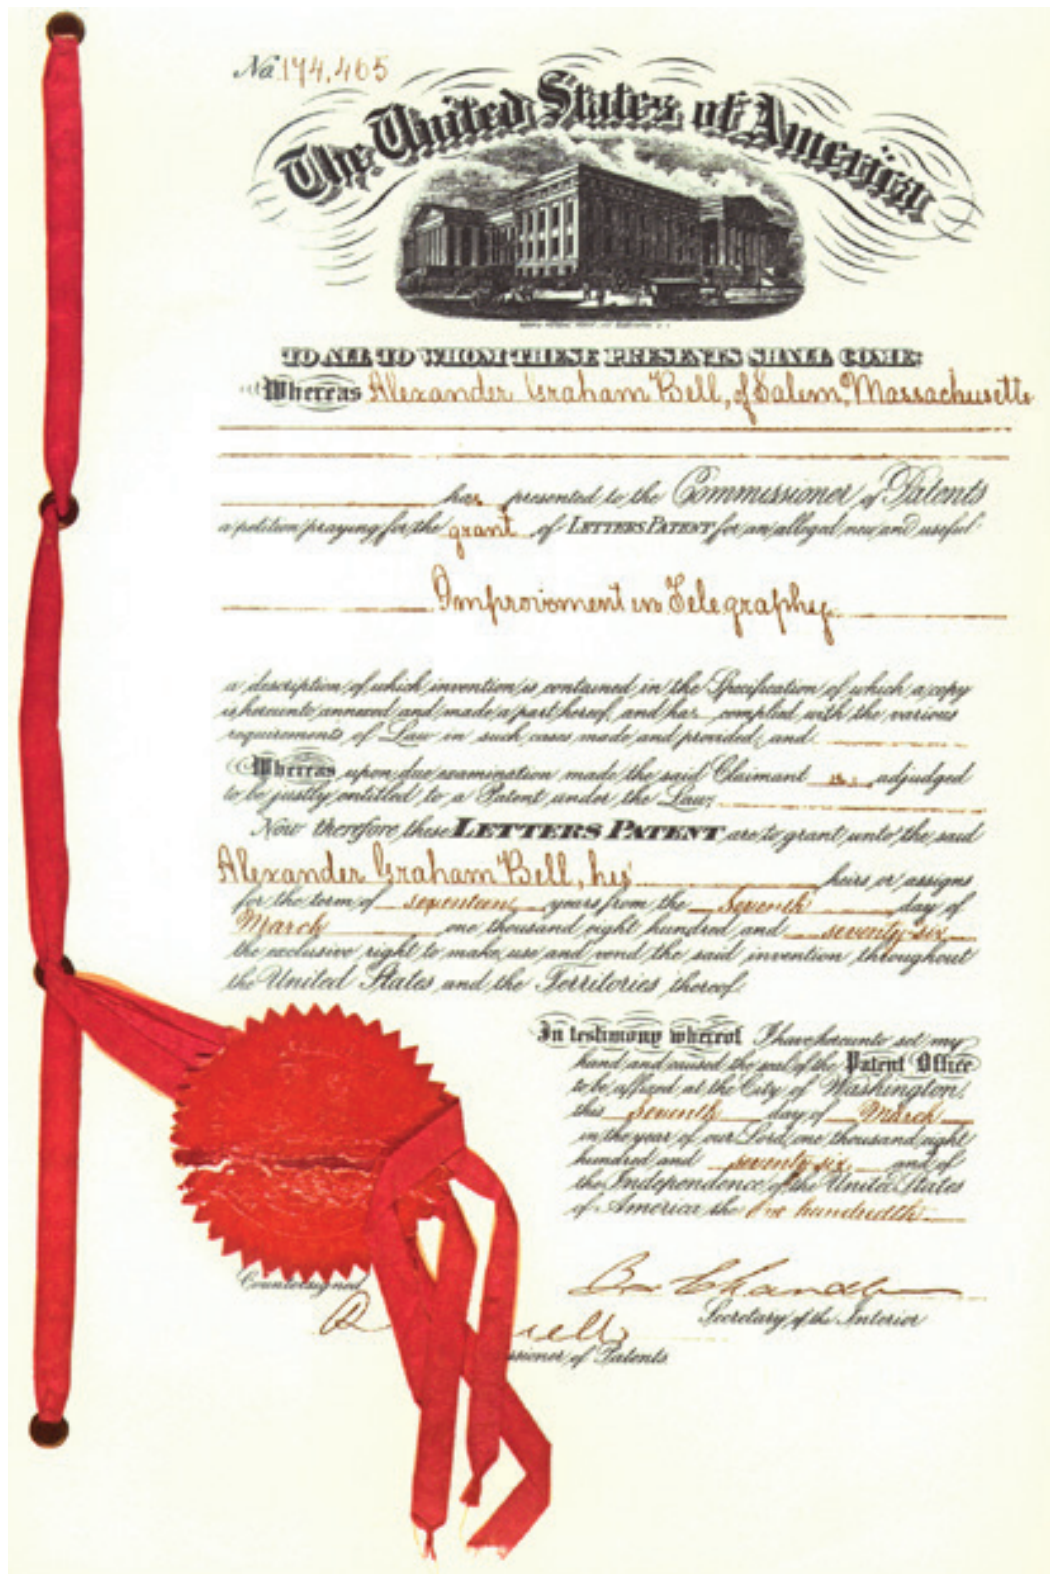 No. 174,465
The United States of America
TO ALL TO WHOM THESE PRESENTS SHALL COME:
Whereas Alexander Graham Bell, of Salem, Massachusetts
has presented to the Commissioner of Patents
a petition praying for the grant of LETTERS PATENT for an alleged new and useful
Improvement in Telegraphy
a description of which invention is contained in the Specification of which a copy
is hereunto annexed and made a part hereof, and has complied with the various
requirements of Law in such cases made and provided, and
Whereas upon due examination made the said Claimant is adjudged
to be justly entitled to a Patent under the Law;
Now therefore these LETTERS PATENT are to grant unto the said
Alexander Graham Bell, his heirs or assigns
for the term of seventeen years from the Seventh day of
March one thousand eight hundred and seventy-six
the exclusive right to make, use and vend the said invention throughout
the United States and the Territories thereof.
In testimony whereof I have hereunto set my
hand and caused the seal of the Patent Office
to be affixed at the City of Washington,
this Seventh day of March
in the year of our Lord one thousand eight
hundred and seventy-six and of
the Independence of the United States
of America the one hundredth
Countersigned
Secretary of the Interior
of Patents